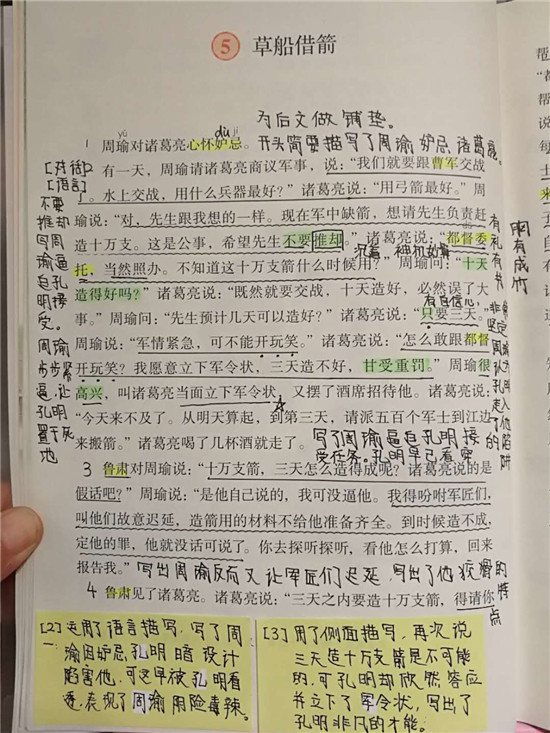 5 草船借箭
为后文做铺垫。
yú dù jì
1 周瑜对诸葛亮心怀妒忌。开头简要描写了周瑜妒忌诸葛亮。
2 有一天，周瑜请诸葛亮商议军事，说：“我们就要跟曹军交战
了。水上交战，用什么兵器最好？”诸葛亮说：“用弓箭最好。”周
瑜说：“对，先生跟我想的一样。现在军中缺箭，想请先生负责赶
造十万支。这是公事，希望先生不要推却。”诸葛亮说：“都督委
托，当然照办。不知道这十万支箭什么时候用？”周瑜问：“十天
造得好吗？”诸葛亮说：“既然就要交战，十天造好，必然误了大
事。”周瑜问：“先生预计几天可以造好？”诸葛亮说：“只要三天。”
周瑜说：“军情紧急，可不能开玩笑。”诸葛亮说：“怎么敢跟都督
开玩笑？我愿意立下军令状，三天造不好，甘受重罚。”周瑜很
高兴，叫诸葛亮当面立下军令状，又摆了酒席招待他。诸葛亮说：
“今天来不及了。从明天算起，到第三天，请派五百个军士到江边
来搬箭。”诸葛亮喝了几杯酒就走了。写了周瑜逼迫孔明接
受任务。孔明早已看穿
3 鲁肃对周瑜说：“十万支箭，三天怎么造得成呢？诸葛亮说的是
假话吧？”周瑜说：“是他自己说的，我可没逼他。我得吩咐军匠们，
叫他们故意迟延，造箭用的材料不给他准备齐全。到时候造不成，
定他的罪，他就没话可说了。你去探听探听，看他怎么打算，回来
报告我。”写出周瑜反而又让军匠们迟延，写出了他狡猾的特
点
4 鲁肃见了诸葛亮。诸葛亮说：“三天之内要造十万支箭，得请你
[对话]
[语言]
不要推却写周瑜逼迫孔明接受。
周瑜步步紧逼，让孔明置于死地
有自信心
有礼有节
胸有成竹
[2]运用了语言描写，写了周
瑜因妒忌孔明暗设计
陷害他，可这早被孔明看
透，表现了周瑜阴险毒辣。
[3]用了侧面描写，再次说
三天造十万支箭是不可能
的，可孔明却欣然答应
并立下了军令状，写出了
孔明非凡的才能。